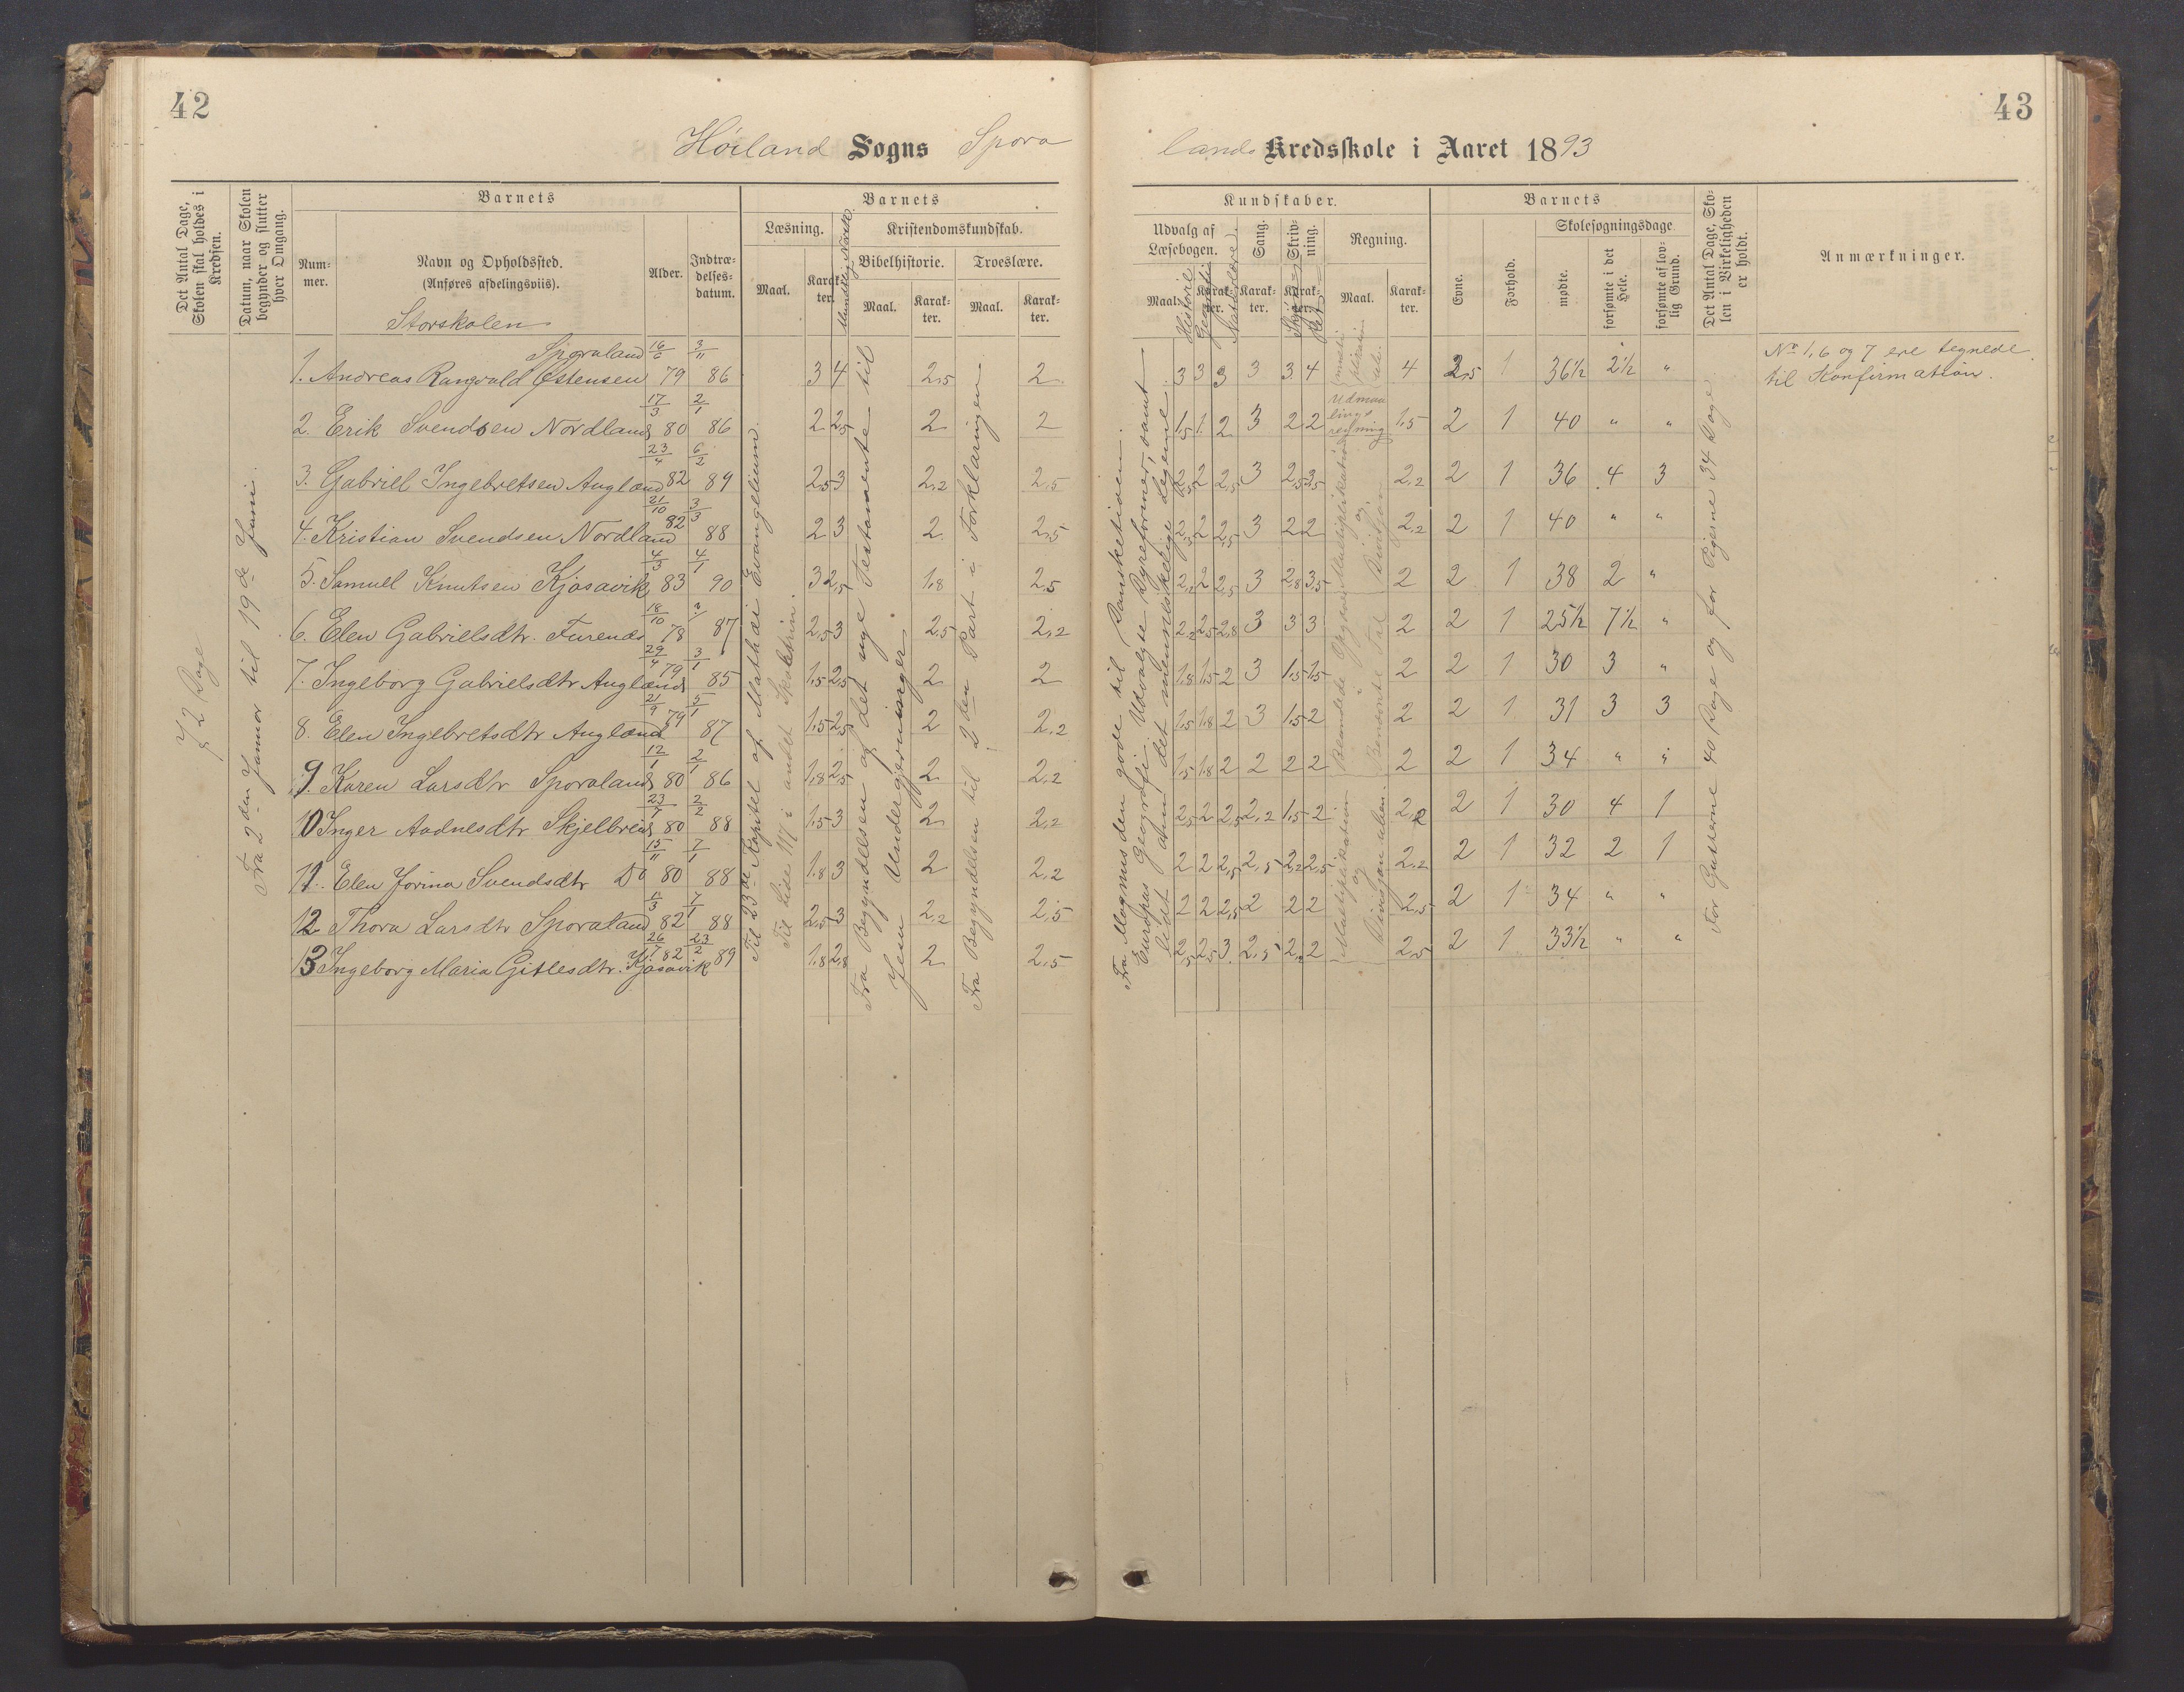 42
Høiland Sogns Spora
Det Antal Dage, Skolen skal holdes i Kredsen.
Datum, naar Skolen begynder og slutter hver Omgang.
Barnets
Num-mer.
Navn og Opholdssted.
(Anføres afdelingsviis).
Alder.
Indtræ-delses-datum.
Barnets
Læsning.
Maal.
Karak-ter.
Mundtlig Norsk.
Kristendomskundskab.
Bibelhistorie.
Troeslære.
Maal.
Karak-ter.
Maal.
Karak-ter.
Storskolen
72 Dage
Fra 2den Januar til 19de Juni.
1. Andreas Rangvald Østensen Sporaland 16/6 79 3/11 86 3 4 2,5 2
2. Erik Svendsen Nordland 17/3 80 2/1 86 2 2,5 2 2
3. Gabriel Ingebretsen Augland 23/4 82 6/2 89 2,5 3 2,2 2,5
4. Kristian Svendsen Nordland 21/10 82 3/3 88 2 3 2 2,5
5. Samuel Knutsen Kjosavik 4/3 83 4/1 90 3 2,5 1,8 2,5
6. Elen Gabrielsdtr. Furenes 18/10 78 ?/ 87 2,5 3 2,5 2,2
7. Ingeborg Gabrielsdtr Augland 29/4 79 3/1 85 1,5 2,5 2 2
8. Elen Ingebretsdtr Augland 21/9 79 5/1 87 1,5 2,5 2 2,2
9. Karen Larsdtr Sporaland 12/1 80 2/1 86 1,8 2,5 2 2,2
10 Inger Aadnesdtr Skjelbreid 23/7 80 2/2 88 1,5 3 2 2,2
11. Elen Jorina Svendsdtr Do 15/11 80 7/1 88 1,8 3 2 2,2
12 Thora Larsdtr Sporaland 82 7/1 88 2,5 3 2,2 2,5
13 Ingeborg Maria Gitlesdtr. Kjosavik 26/7 82 23/2 89 1,8 2,8 2 2,5
Til 23de Kapitel af Mathæi Evangelium.
Til Side 117 i andet Skoletrin.
Fra Begyndelsen af det nye Testamente til
Jesu Undergjerninger
Fra Begyndelsen til 2den Part i Forklaringen
43
lands Kredsskole i Aaret 1893
Kundskaber.
Udvalg af Læsebogen.
Maal.
Historie
Karak-ter.
Geografi
Naturlære
Sang.
Karak-ter.
Skriv-ning.
Karak-ter.
Regning.
Maal.
Karak-ter.
Barnets
Evne.
Forhold.
Skolesøgningsdage
mødte.
forsømte i det Hele.
forsømte af lov-lig Grund.
Det Antal Dage, Sko-len i Virkeligheden er holdt.
Anmærkninger.
Fra Magnus den gode til Danskетiden.
Europas Geografi. Udvalgte Dyreformer, samt
lidt om det menneskelige Legeme
Udmaalingsregning
Blandede Opgaver i Multiplikation og Division
Benævnte Tal
Multiplikation og Division uben.
3 3 3 3 3 4 4 2,5 1 36½ 2½ "
1,5 1 2 3 2 2 1,5 2 1 40 " "
2,5 2 2,5 3 2,5 3,5 2,2 2 1 36 4 3
2,5 2 2,5 3 2 2 2,2 2 1 40 " "
2,2 2 2,5 3 2,8 3,5 2 2 1 38 2 "
2,2 2,5 2,8 3 3 3 2 2 1 25½ 7½ "
1,8 1,5 2 3 1,5 1,5 2 2 1 30 3 "
1,5 1,8 2 3 1,5 2 2 2 1 31 3 3
1,5 1,8 2 2 2 2 2 2 1 34 " "
2,5 2 2,5 2,2 1,5 2 2,2 2 1 30 4 1
2 2 2,5 2,5 2,2 2,5 2,2 2 1 32 2 1
2 2 2,5 2 2 2 2,5 2 1 34 " "
2,5 2,5 3 2,5 2,2 2 2,5 2 1 33½ " "
For Gutterne 40 Dage og for Pigerne 34 Dage
No 1, 6 og 7 ere tegnede
til Konfirmation.